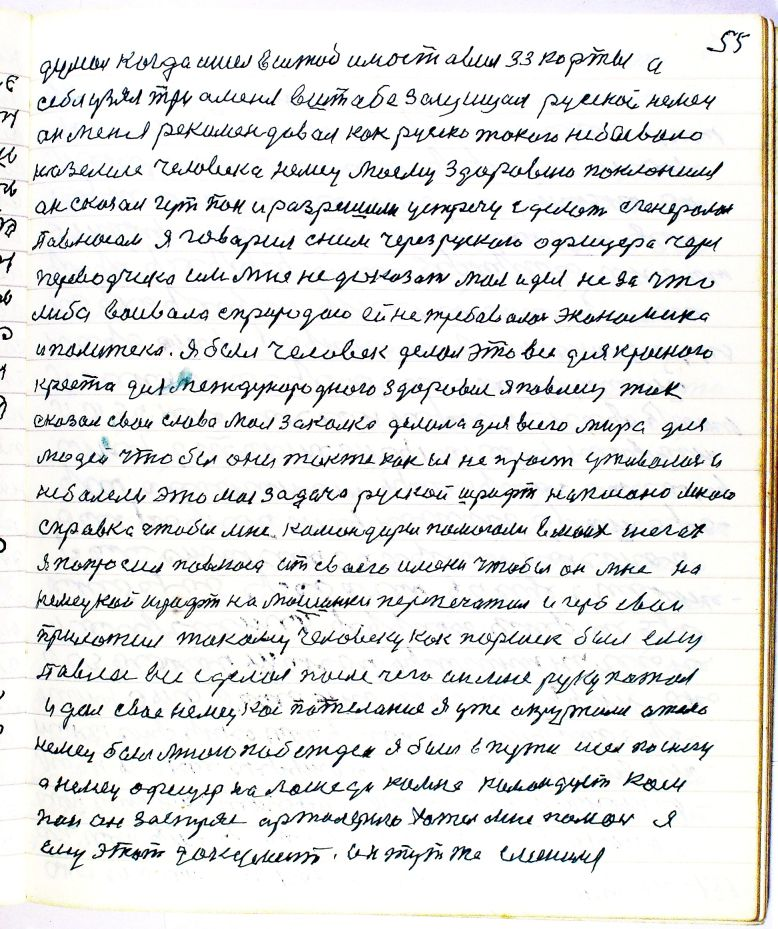 55
думал когда шел в штаб им оставил 33 карты а
себе взял три а меня в штабе защищал русской немец
он меня рекомендовал как руско такого небывало
на земле человека немец моему здоровью поклонился
он сказал гут пан и разрешили устречу сделат с генералом
Павлюсам я говорил с ним через руского офицера через
переводчика им мне не доказат моя идея не за что
либа воивала с природаю ей не требавалас экономика
и политека. Я был человек делал это все для красного
креста для международного здоровья я павлецу так
сказал свои слова моя закалка делала для всего мира для
людей чтобы они также как и я не прост уживалис и
неболели это моя задача руской шрафт написано много
справка чтобы мне камандиры помогали в моих шегах
я попросил павлюса от своего имени чтобы он мне на
немецкой шрафт на машинки перпечатал и герб свой
приложил такому человеку как паршек был ему
Павлюс все сделал после чего он мне руку пажал
и дал свае немецкое пожелание я уже окружили
немец был мною побежден я был в пути шел по снегу
а немец офицер на лошеди камне камандует ком
пан он застрял артилерию хотел мне помоч я
ему этот документ. он тут же сменился